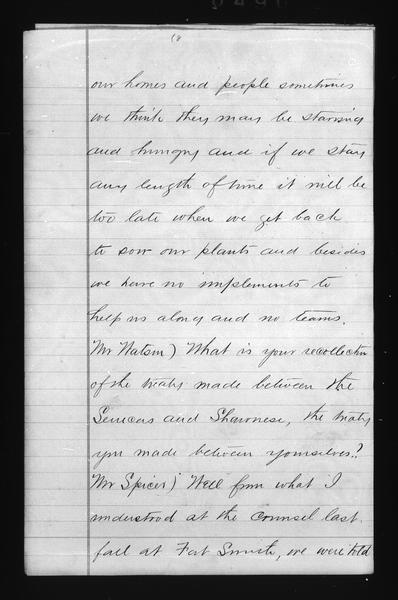 18
our homes and people sometimes
we think they may be starving
and hungry and if we stay
any length of time it will be
too late when we get back
to sow our plants and besides
we have no implements to
help us along and no teams.
Mr Watson) What is your recollection
of the treaty made between the
Senecas and Shawnese, the treaty
you made between yourselves?
Mr Spicer) Well from what I
understood at the counsel last
fall at Fort Smith, we were told